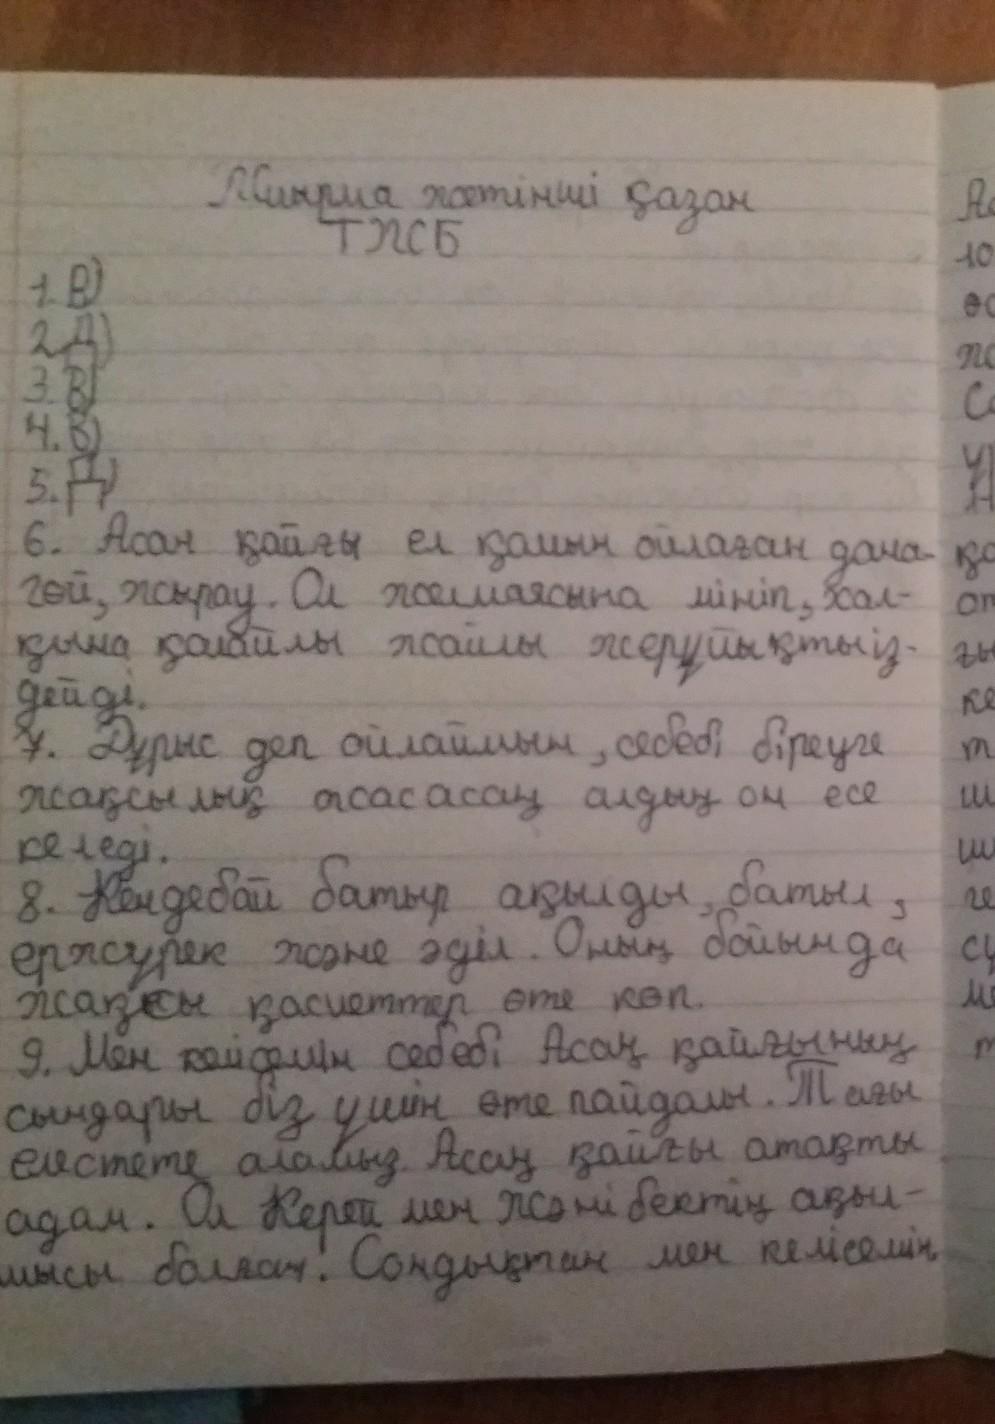 Жиырма жетінші қазан
ТЖСБ
1. В)
2. Д)
3. В)
4. В)
5. Д)
6. Асан қайғы ел қамын ойлаған дана-
гөй, жырау. Ол желмаясына мініп, хал-
қына қолайлы жайлы жерұйықты із-
дейді.
7. Дұрыс деп ойлаймын, себебі біреуге
жақсылық жасасаң алдың он есе
келеді.
8. Кендебай батыр ақылды, батыл,
ержүрек және әділ. Оның бойында
жақсы қасиеттер өте көп.
9. Мен келісемін себебі Асан қайғының
сындары біз үшін өте пайдалы. Тағы
елестете аламыз Асаң қайғы атақты
адам. Ол Керей мен Жәнібектің ақыл-
шысы болған! Сондықтан мен келісемін.
Ас
10
өс
же
Со
қа
оп
ғы
ке
т
ш
ш
ге
сү
ме
т